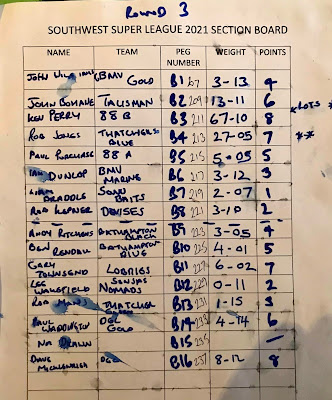 ROUND 3
SOUTHWEST SUPER LEAGUE 2021 SECTION BOARD
NAME TEAM PEG NUMBER WEIGHT POINTS
JOHN WILLIAMS BMV GOLD B1 207 3-13 4
JOHN BOWANE TALISMAN B2 209 13-11 6
KEN PERRY 88 B B3 211 67-10 8 LOTS *
ROB JONES THATCHERS BLUE B4 213 27-05 7 **
PAUL PURCHASE 88 A B5 215 5-05 5
IAN DUNLOP BMV MARINE B6 217 3-12 3
LIAM BRADDLE SONU BAITS B7 219 2-07 1
ROB DEVISES B8 221 3-10 2
ANDY RITCHENS BATHAMPTON BLACK B9 223 3-05 4
BEN RENDALL BATHAMPTON BLUE B10 225 4-01 5
GARY TOWNSEND LOBBIES B11 227 6-02 7
LEE WAKEFIELD SENSAS NOMADS B12 229 0-11 2
ROB MANNS THATCHER B13 231 1-15 3
PAUL WADDINGTON OGL GOLD B14 233 4-14 6
NO DRAWN B15 235 — —
DAVE OGL B16 237 8-12 8